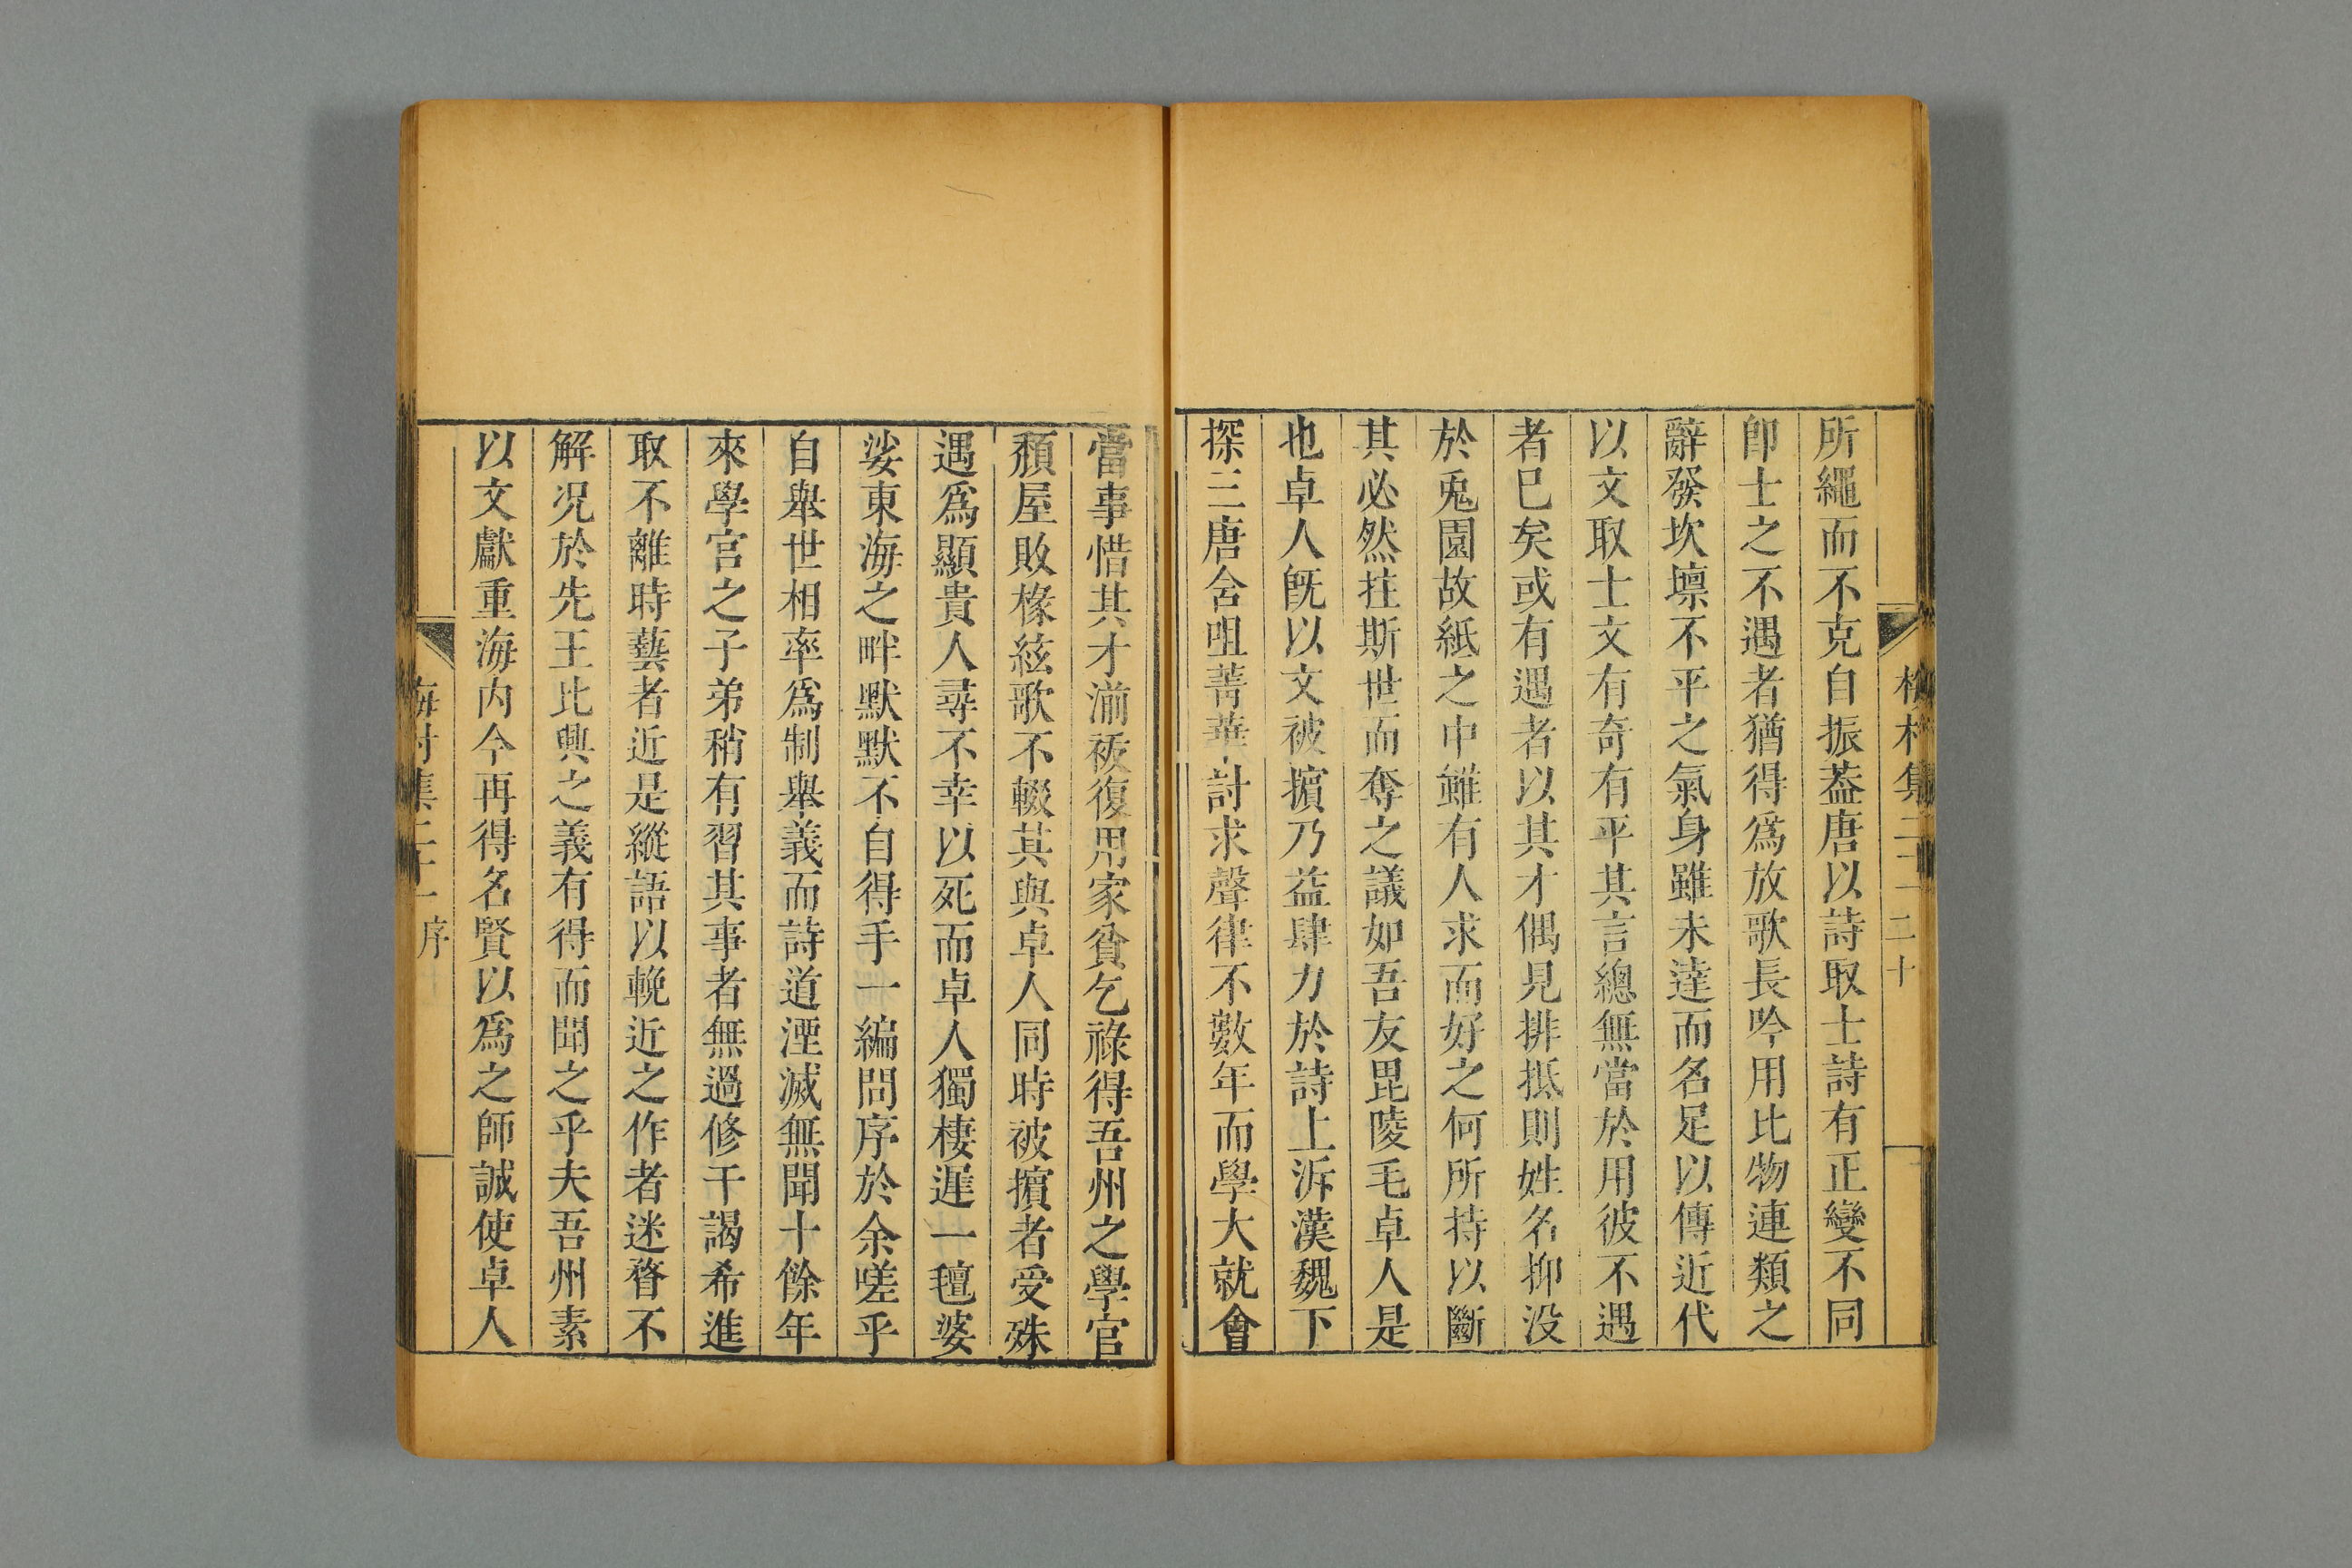 所繩而不克自振葢唐以詩取士詩有正變不同
卽士之不遇者猶得爲放歌長吟用比物連類之
辭發坎壈不平之氣身雖未達而名足以傳近代
以文取士文有奇有平其言總無當於用彼不遇
者已矣或有遇者以其才偶見排抵則姓名抑没
於兎園故紙之中雖有人求而好之何所持以斷
其必然拄斯世而奪之議如吾友毘陵毛卓人是
也卓人旣以文被擯乃益肆力於詩上泝漢魏下
探三唐含咀菁華討求聲律不數年而學大就會
二十
當事惜其才湔祓復用家貧乞祿得吾州之學官
頽屋敗椽絃歌不輟其與卓人同時被擯者受殊
遇爲顯貴人尋不幸以死而卓人獨棲遲一氊婆
娑東海之畔默默不自得手一編問序於余嗟乎
自舉世相率爲制舉義而詩道湮滅無聞十餘年
來學官之子弟稍有習其事者無過修干謁希進
取不離時藝者近是縱語以輓近之作者迷瞀不
解况於先王比興之義有得而聞之乎夫吾州素
以文獻重海内今再得名賢以爲之師誠使卓人
序